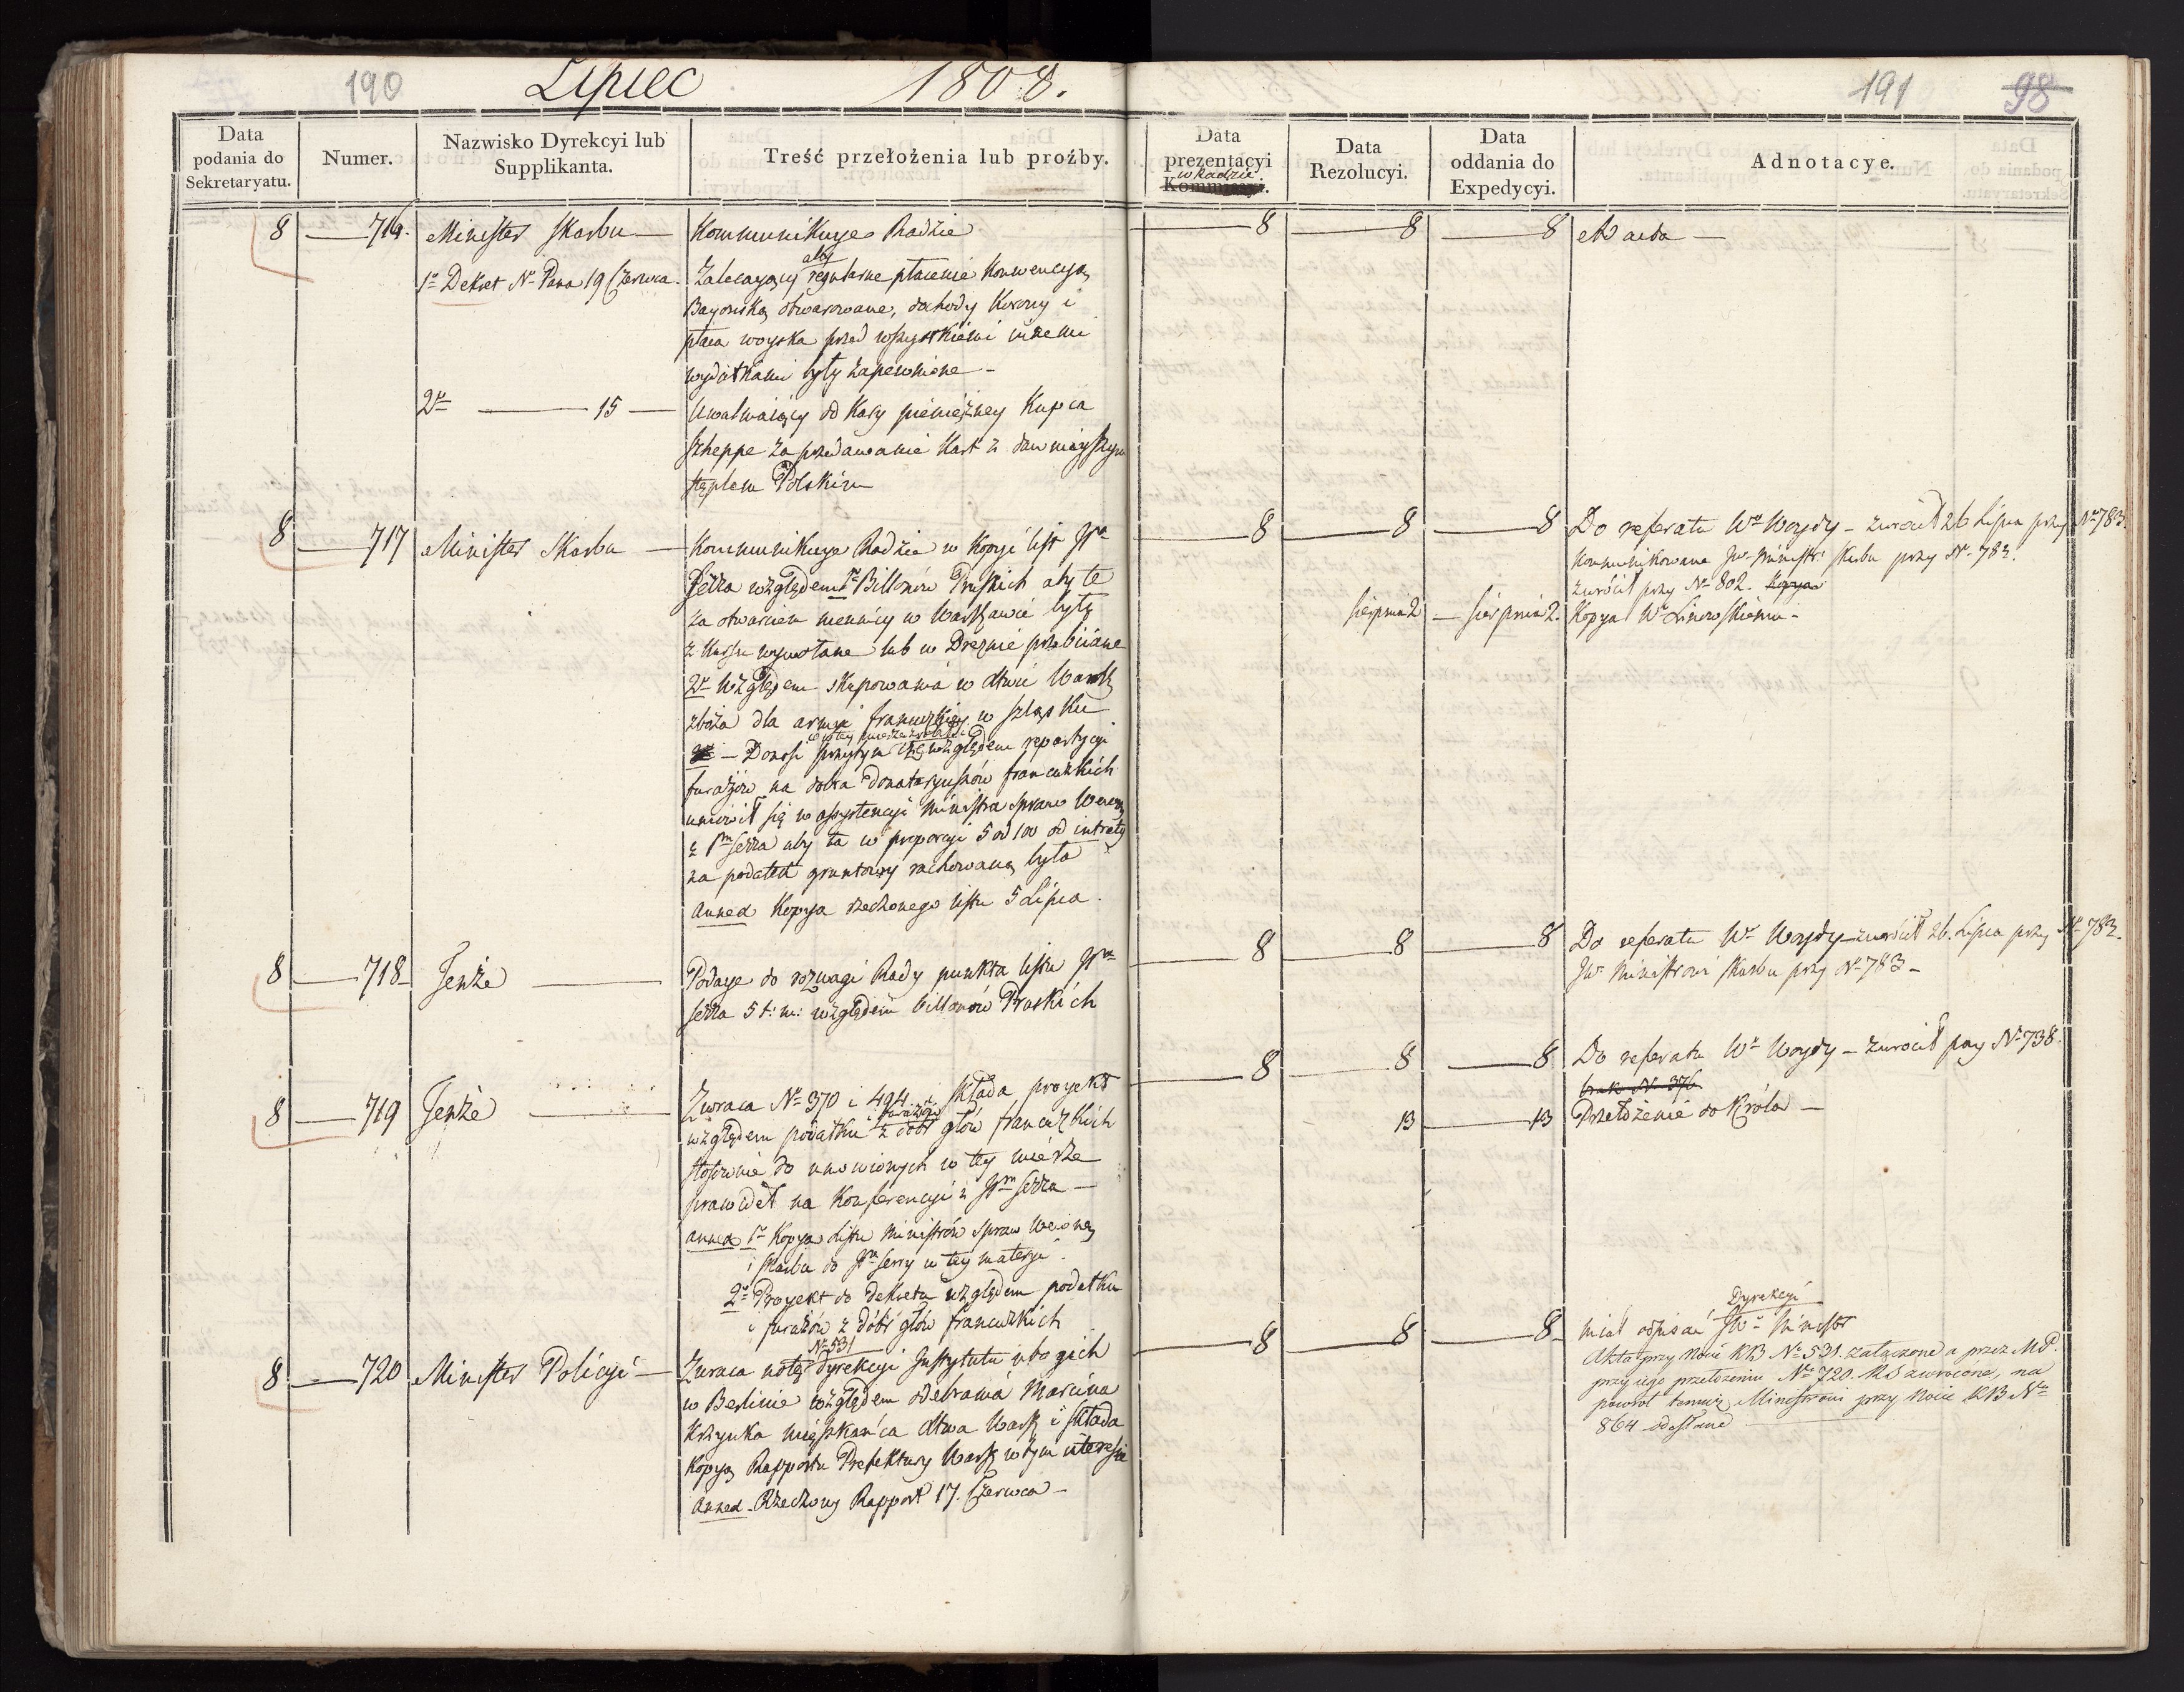 190 Lipiec 1808.
191 98
Data podania do Sekretaryatu.
Numer.
Nazwisko Dyrekcyi lub Supplikanta.
Treść przełożenia lub proźby.
Data prezentacyi w Radzie Kommissyi.
Data Rezolucyi.
Data oddania do Expedycyi.
Adnotacye.
8 — 716. Minister Skarbu — Kommunikuye Radzie — 8 — 8 — 8 Ad acta —
1º Dekret N. Pana 19 Czerwca. Zalecaiący aby regularne płacenie Konwencyą
Bayońską obwarowane, dochody Korony i
płaca woyska przed wszystkiemi innemi
wydatkami były zapewnione —
2º — 15 — Uwalniaiący od kary pieniężney Kupca
Scheppe za przedawanie Kart z dawnieyszym
stęplem Polskim
8 — 717 Minister Skarbu — Kommunikuye Radzie w Kopyi list Pna — 8 — 8 — 8 Do referatu Wº Woydy — zwrócił 26 Lipca przy Nº 783.
Serra względem 1º Billonów Pruskich aby te
kommunikowane JW. Ministr. Skarbu przy Nº 783.
za otwarciem mennicy w Warszawie były
zwrócił przy Nº 802. Kopya
z kursu wywołane lub w Dreznie przebiiane
Sierpnia 2 — Sierpnia 2. Kopya Wº Linowskiemu —
2º Względem skupowania w dtwie Warsz
zboża dla armii francuzkiey w Szląsku
— Donosi przytym iż względem repartycyi
furażów na dobra Donataryuszów francuzkich
umówił się w assystencyi Ministra Spraw Wewn
z Pm Serra aby ta w proporcyi 5 od 100 od intraty
za podatek gruntowy rachowaną była
annex Kopya rzeczonego listu 5 Lipca.
8 — 718 Tenże — Podaye do rozwagi Rady punkta listu Pna — 8 — 8 — 8 Do referatu Wº Woydy — zwrócił 26. Lipca przy Nº 783.
Serra 5 t: m: względem billonów Pruskich
JW. Ministrowi Skarbu przy Nº 783 —
8 — 719 Tenże — Zwraca Nº 370 i 494. i składa proyekt — 8 — 8 — 8 Do referatu Wº Woydy — zwrócił przy Nº 738.
brak Nº 376
względem podatku i furażów z dóbr głów francuzkich
13 — 13 Przełożenie do Króla —
stosownie do umówionych w tey mierze
prawideł na Konferencyi z Pm Serra —
annex 1º Kopya Listu Ministrów Spraw Wewnę
i Skarbu do Pna Serry w tey materyi.
2º Proyekt do dekretu względem podatku
i furażów z dóbr głów francuzkich
8 — 720 Minister Policyi — Zwraca notę Nº 531 Dyrekcyi Instytutu ubogich — 8 — 8 — 8 miał odpisać Dyrekcyi JW. Ministr
w Berlinie względem odebrania Marcina
Krzynka mieszkańca dtwa Warsz i składa
kopyą Rapportu Prefektury Warsz w tym interesie
annex. Rzeczony Rapport 17. Czerwca —
Akta przy Nocie KB Nº 531. załączone a przez MP.
przy iego przełożeniu Nº 720. RS zwrócone, na
powrót temuż Ministrowi przy Nocie KB Nº
864 odesłane